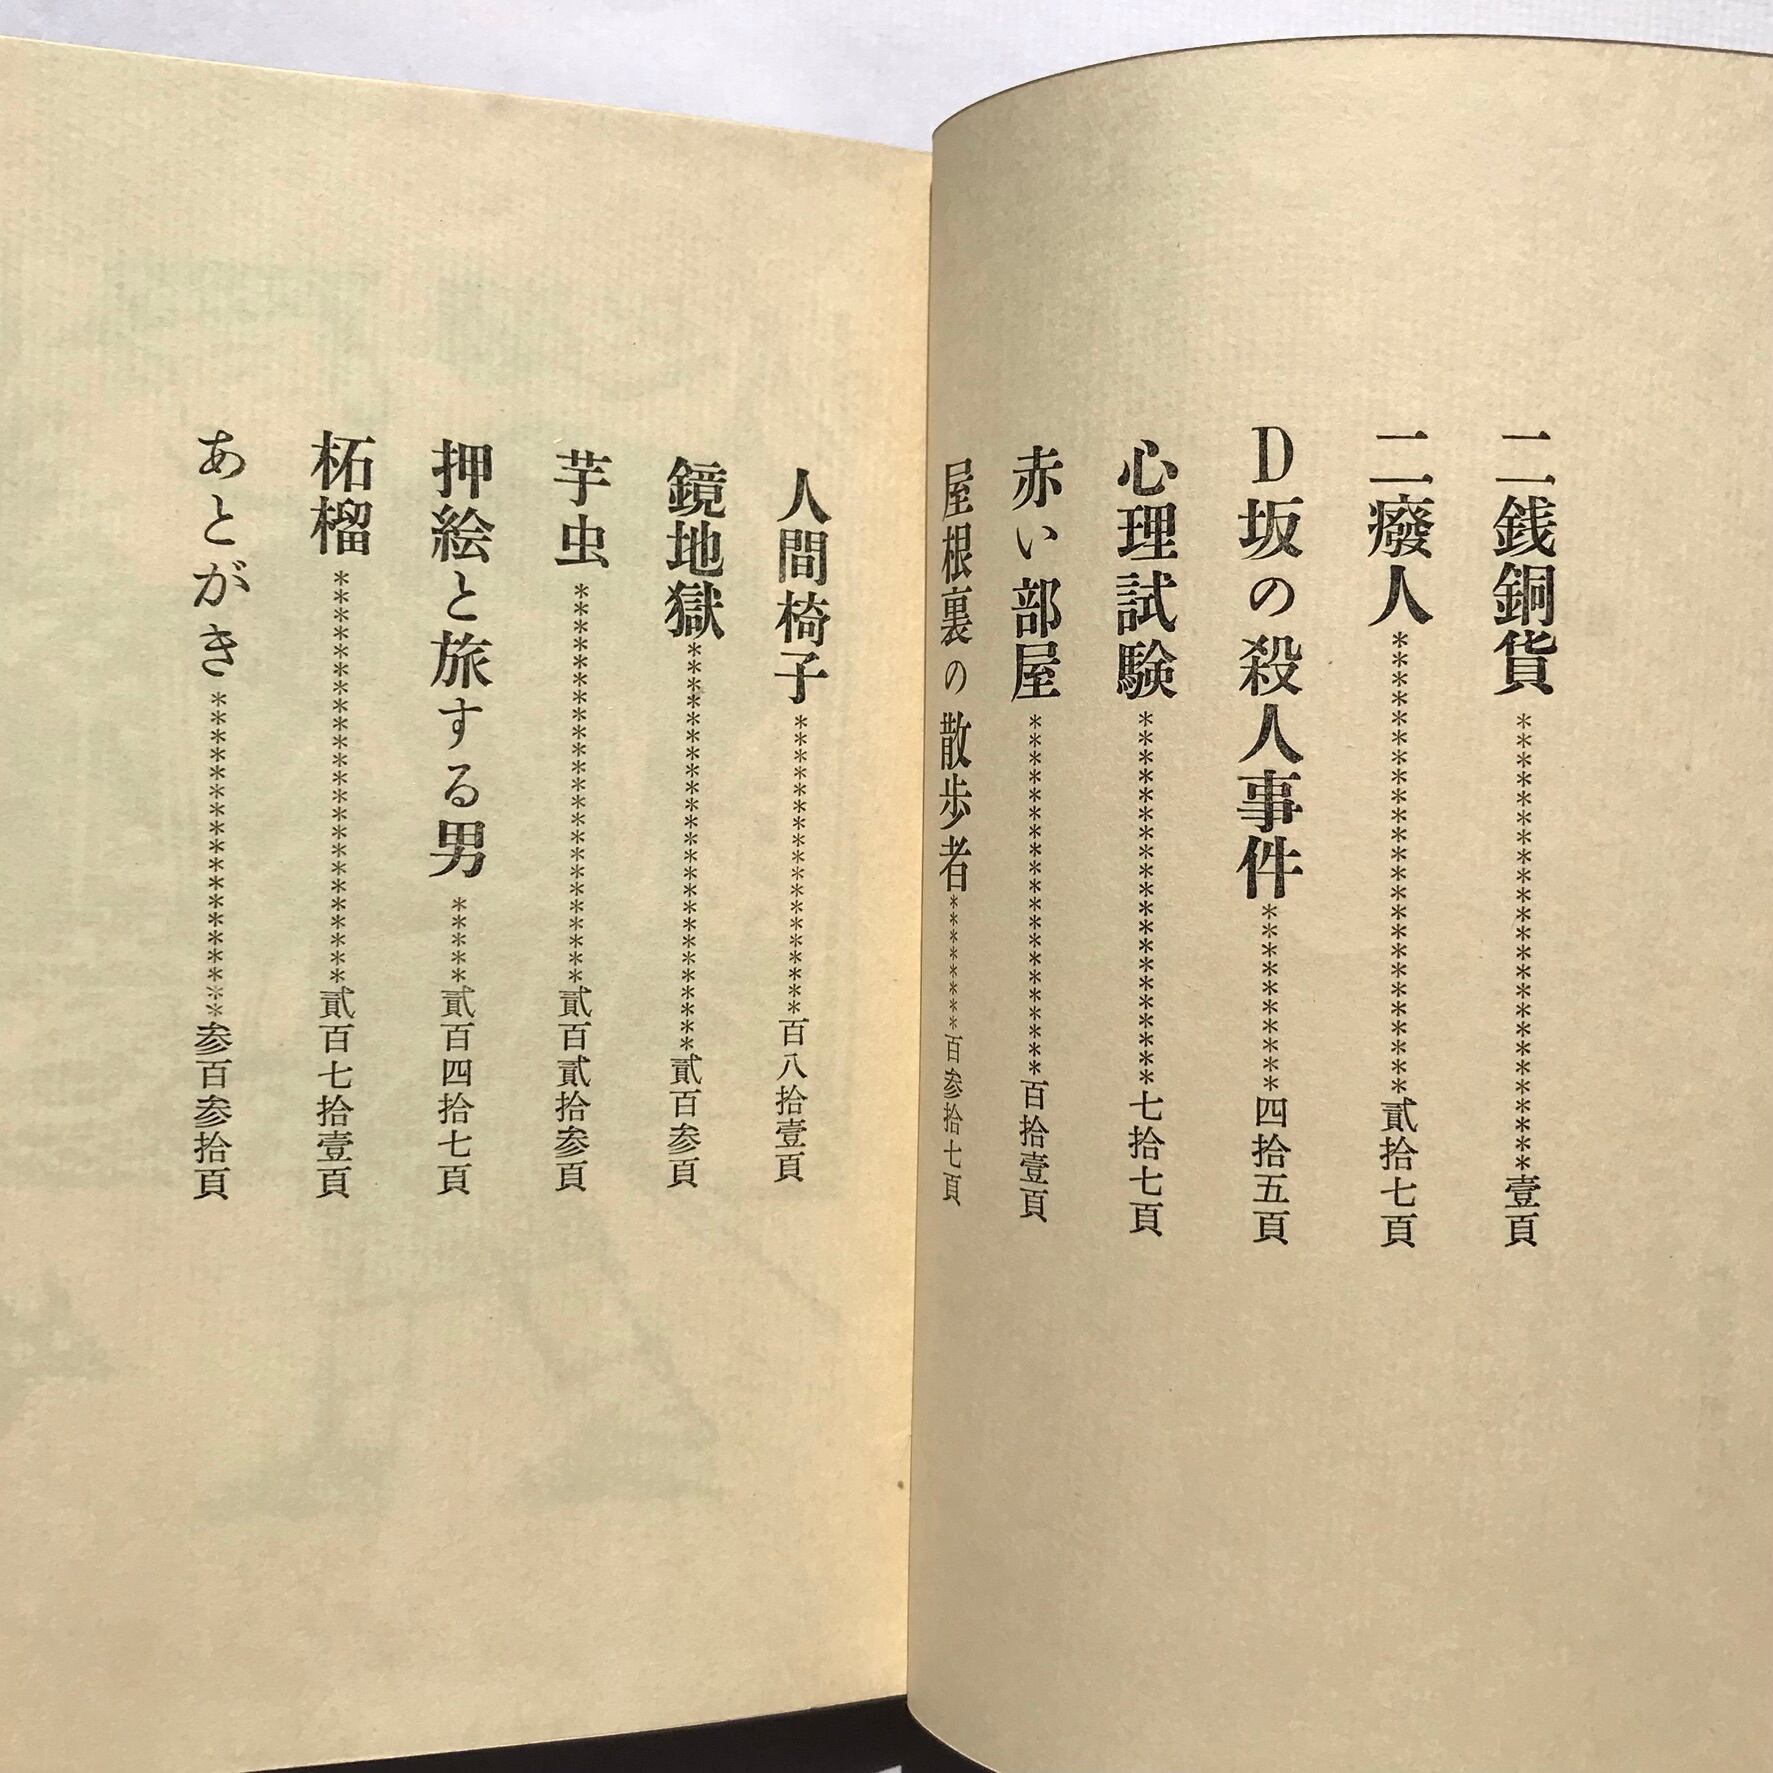 二銭銅貨***********************壹頁
二癈人*************************貳拾七頁
D坂の殺人事件**********四拾五頁
心理試験********************七拾七頁
赤い部屋*******************百拾壹頁
屋根裏の散歩者********百参拾七頁
人間椅子****************百八拾壹頁
鏡地獄**********************貳百参頁
芋虫**********************貳百貳拾参頁
押絵と旅する男*****貳百四拾七頁
柘榴***********************貳百七拾壹頁
あとがき******************参百参拾頁